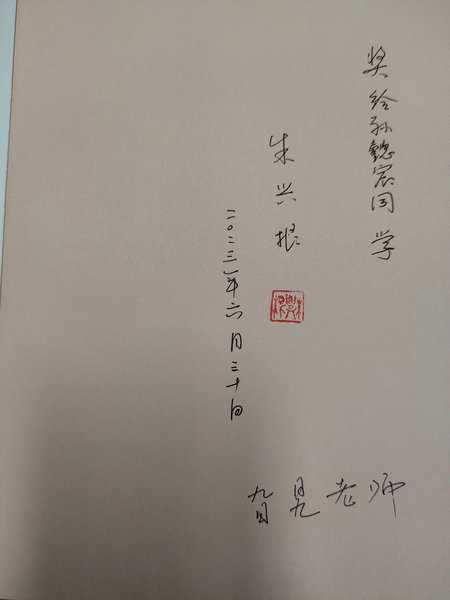 奖给孙懿宸同学
朱兴根
二〇二三年六月三十日
旮旯老师